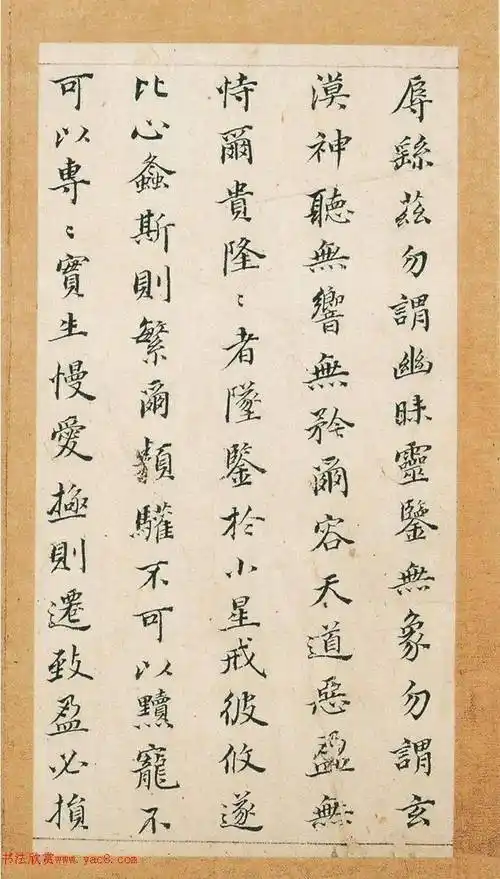 辱繇茲勿謂幽昧靈鑒無象勿謂玄
漠神聽無響無矜爾容天道惡盈無
恃爾貴隆〻者墜鑒於小星戒彼攸遂
比心螽斯則繁爾類驩不可以黷寵不
可以專〻實生慢愛極則遷致盈必損
书法欣赏www.yac8.com